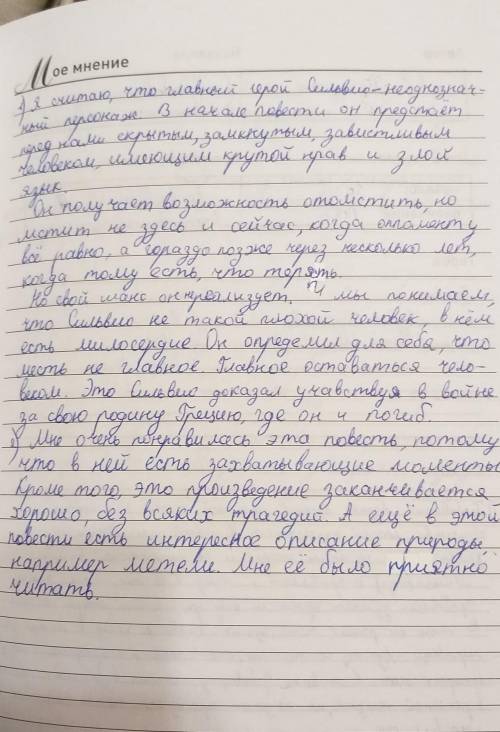 Мое мнение
1) Я считаю, что главный герой Сильвио-неоднознач-
ный персонаж. В начале повести он предстаёт
перед нами скрытым, замкнутым, завистливым
человеком, имеющим крутой нрав и злой
язык.
Он получает возможность отомстить, но
мстит не здесь и сейчас, когда оппоненту
всё равно, а гораздо позже через несколько лет,
когда тому есть, что терять.
Но свой шанс он реализует. И мы понимаем,
что Сильвио не такой плохой человек, в нём
есть милосердие. Он определил для себя, что
месть не главное. Главное оставаться чело-
веком. Это Сильвио доказал учавствуя в войне
за свою родину Грецию, где он и погиб.
Мне очень понравилась эта повесть, потому
что в ней есть захватывающие моменты
Кроме того, это произведение заканчивается
хорошо, без всяких трагедий. А ещё в этой
повести есть интересное описание природы,
например метели. Мне её было приятно
читать.